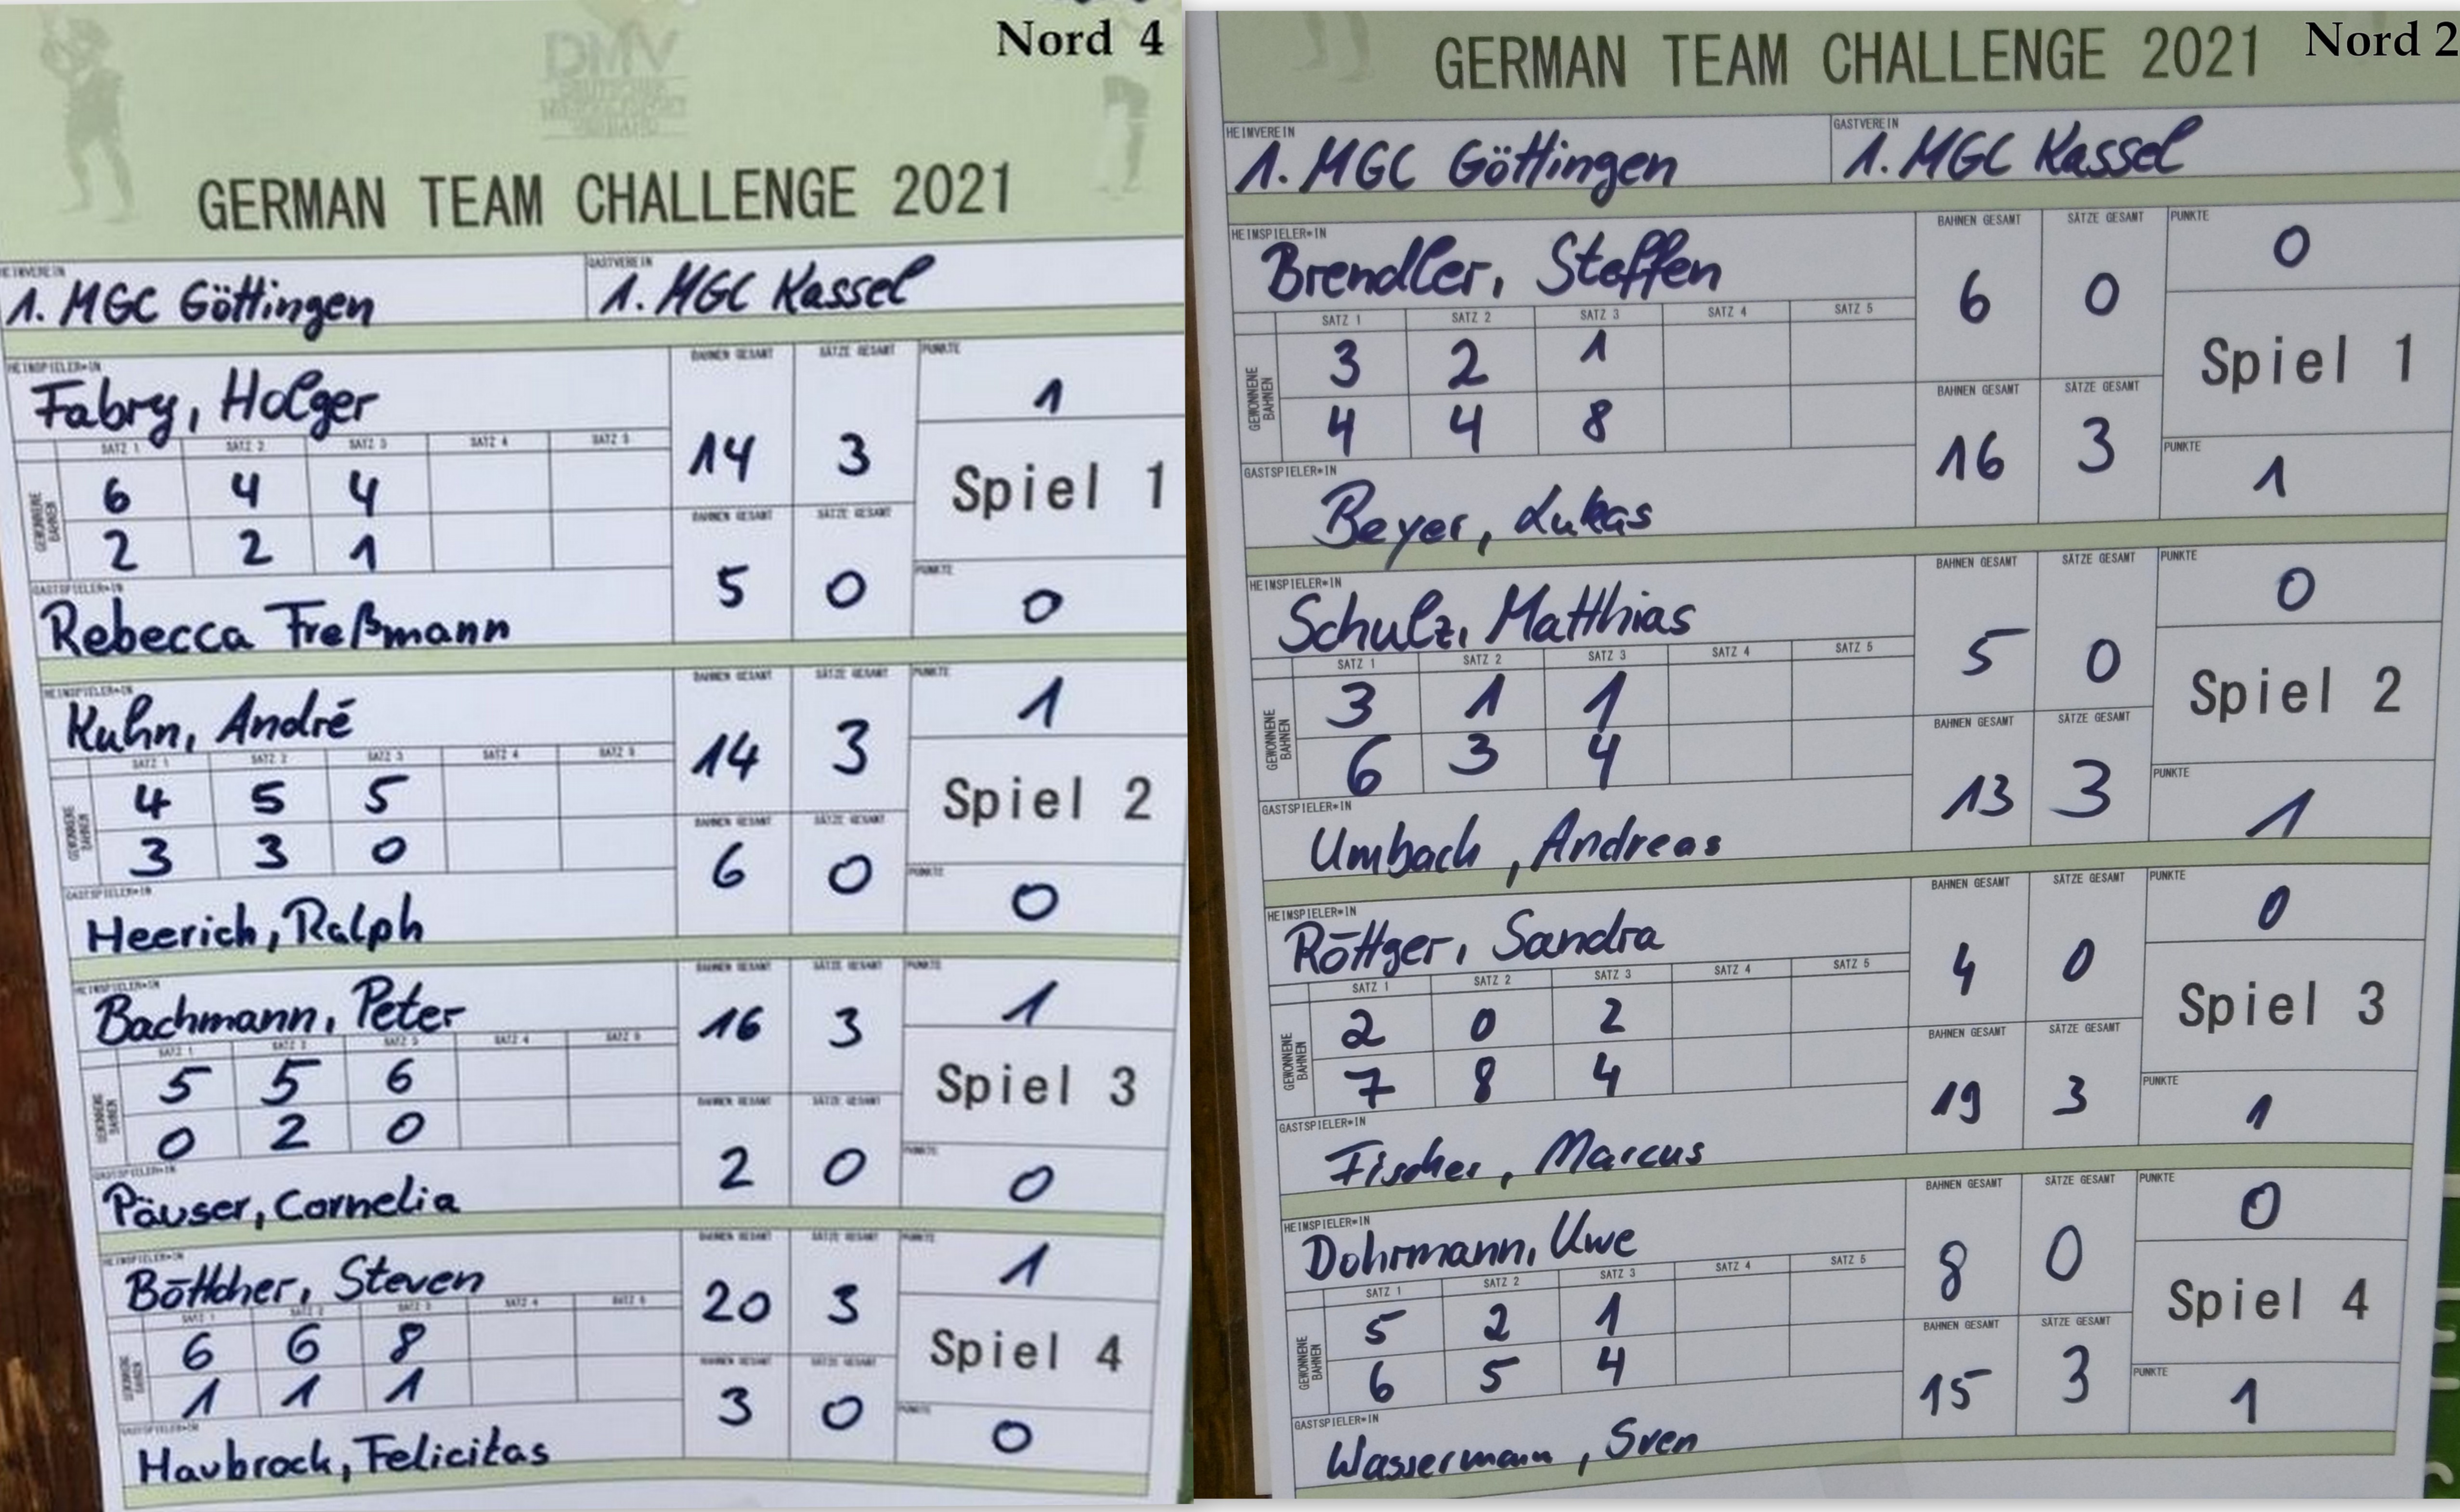 Nord 4
DMV
GERMAN TEAM CHALLENGE 2021
HEIMVEREIN GASTVEREIN
1. MGC Göttingen 1. MGC Kassel
HEIMSPIELER*IN BAHNEN GESAMT SÄTZE GESAMT PUNKTE
Fabry, Holger 14 3 1
SATZ 1 SATZ 2 SATZ 3 SATZ 4 SATZ 5
GEWONNENE BAHNEN
6 4 4
Spiel 1
BAHNEN GESAMT SÄTZE GESAMT
2 2 1
GASTSPIELER*IN PUNKTE
Rebecca Freßmann 5 0 0
HEIMSPIELER*IN BAHNEN GESAMT SÄTZE GESAMT PUNKTE
Kuhn, André 14 3 1
SATZ 1 SATZ 2 SATZ 3 SATZ 4 SATZ 5
GEWONNENE BAHNEN
4 5 5
Spiel 2
BAHNEN GESAMT SÄTZE GESAMT
3 3 0
GASTSPIELER*IN PUNKTE
Heerich, Ralph 6 0 0
HEIMSPIELER*IN BAHNEN GESAMT SÄTZE GESAMT PUNKTE
Bachmann, Peter 16 3 1
SATZ 1 SATZ 2 SATZ 3 SATZ 4 SATZ 5
GEWONNENE BAHNEN
5 5 6
Spiel 3
BAHNEN GESAMT SÄTZE GESAMT
0 2 0
GASTSPIELER*IN PUNKTE
Päuser, Cornelia 2 0 0
HEIMSPIELER*IN BAHNEN GESAMT SÄTZE GESAMT PUNKTE
Böttcher, Steven 20 3 1
SATZ 1 SATZ 2 SATZ 3 SATZ 4 SATZ 5
GEWONNENE BAHNEN
6 6 8
Spiel 4
BAHNEN GESAMT SÄTZE GESAMT
1 1 1
GASTSPIELER*IN PUNKTE
Haubrock, Felicitas 3 0 0
Nord 2
GERMAN TEAM CHALLENGE 2021
HEIMVEREIN GASTVEREIN
1. MGC Göttingen 1. MGC Kassel
HEIMSPIELER*IN BAHNEN GESAMT SÄTZE GESAMT PUNKTE
Brendler, Steffen 6 0 0
SATZ 1 SATZ 2 SATZ 3 SATZ 4 SATZ 5
GEWONNENE BAHNEN
3 2 1
Spiel 1
BAHNEN GESAMT SÄTZE GESAMT
4 4 8
GASTSPIELER*IN PUNKTE
Beyer, Lukas 16 3 1
HEIMSPIELER*IN BAHNEN GESAMT SÄTZE GESAMT PUNKTE
Schulz, Matthias 5 0 0
SATZ 1 SATZ 2 SATZ 3 SATZ 4 SATZ 5
GEWONNENE BAHNEN
3 1 1
Spiel 2
BAHNEN GESAMT SÄTZE GESAMT
6 3 4
GASTSPIELER*IN PUNKTE
Umbach, Andreas 13 3 1
HEIMSPIELER*IN BAHNEN GESAMT SÄTZE GESAMT PUNKTE
Röttger, Sandra 4 0 0
SATZ 1 SATZ 2 SATZ 3 SATZ 4 SATZ 5
GEWONNENE BAHNEN
2 0 2
Spiel 3
BAHNEN GESAMT SÄTZE GESAMT
7 8 4
GASTSPIELER*IN PUNKTE
Fischer, Marcus 19 3 1
HEIMSPIELER*IN BAHNEN GESAMT SÄTZE GESAMT PUNKTE
Dohrmann, Uwe 8 0 0
SATZ 1 SATZ 2 SATZ 3 SATZ 4 SATZ 5
GEWONNENE BAHNEN
5 2 1
Spiel 4
BAHNEN GESAMT SÄTZE GESAMT
6 5 4
GASTSPIELER*IN PUNKTE
Wassermann, Sven 15 3 1